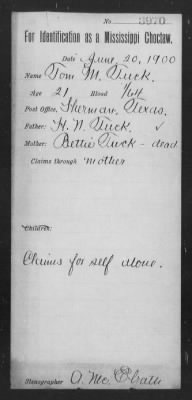 No. 3970
For Identification as a Mississippi Choctaw.
Date June 20, 1900
Name Tom M. Tuck.
Age 21 Blood 1/64
Post Office, Sherman, Texas.
Father: H. N. Tuck ✓
Mother: Bettie Tuck - dead
Claims through mother
Children:
Claims for self alone.
Stenographer A. McElrath